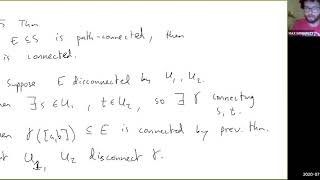 Thm
E ⊆ S is path-connected, then
is connected.
Suppose E disconnected by U₁, U₂.
∃ s∈U₁, t∈U₂, so ∃ γ connecting
s, t.
γ([a,b]) ⊆ E is connected by prev. thm.
U₁, U₂ disconnect γ.